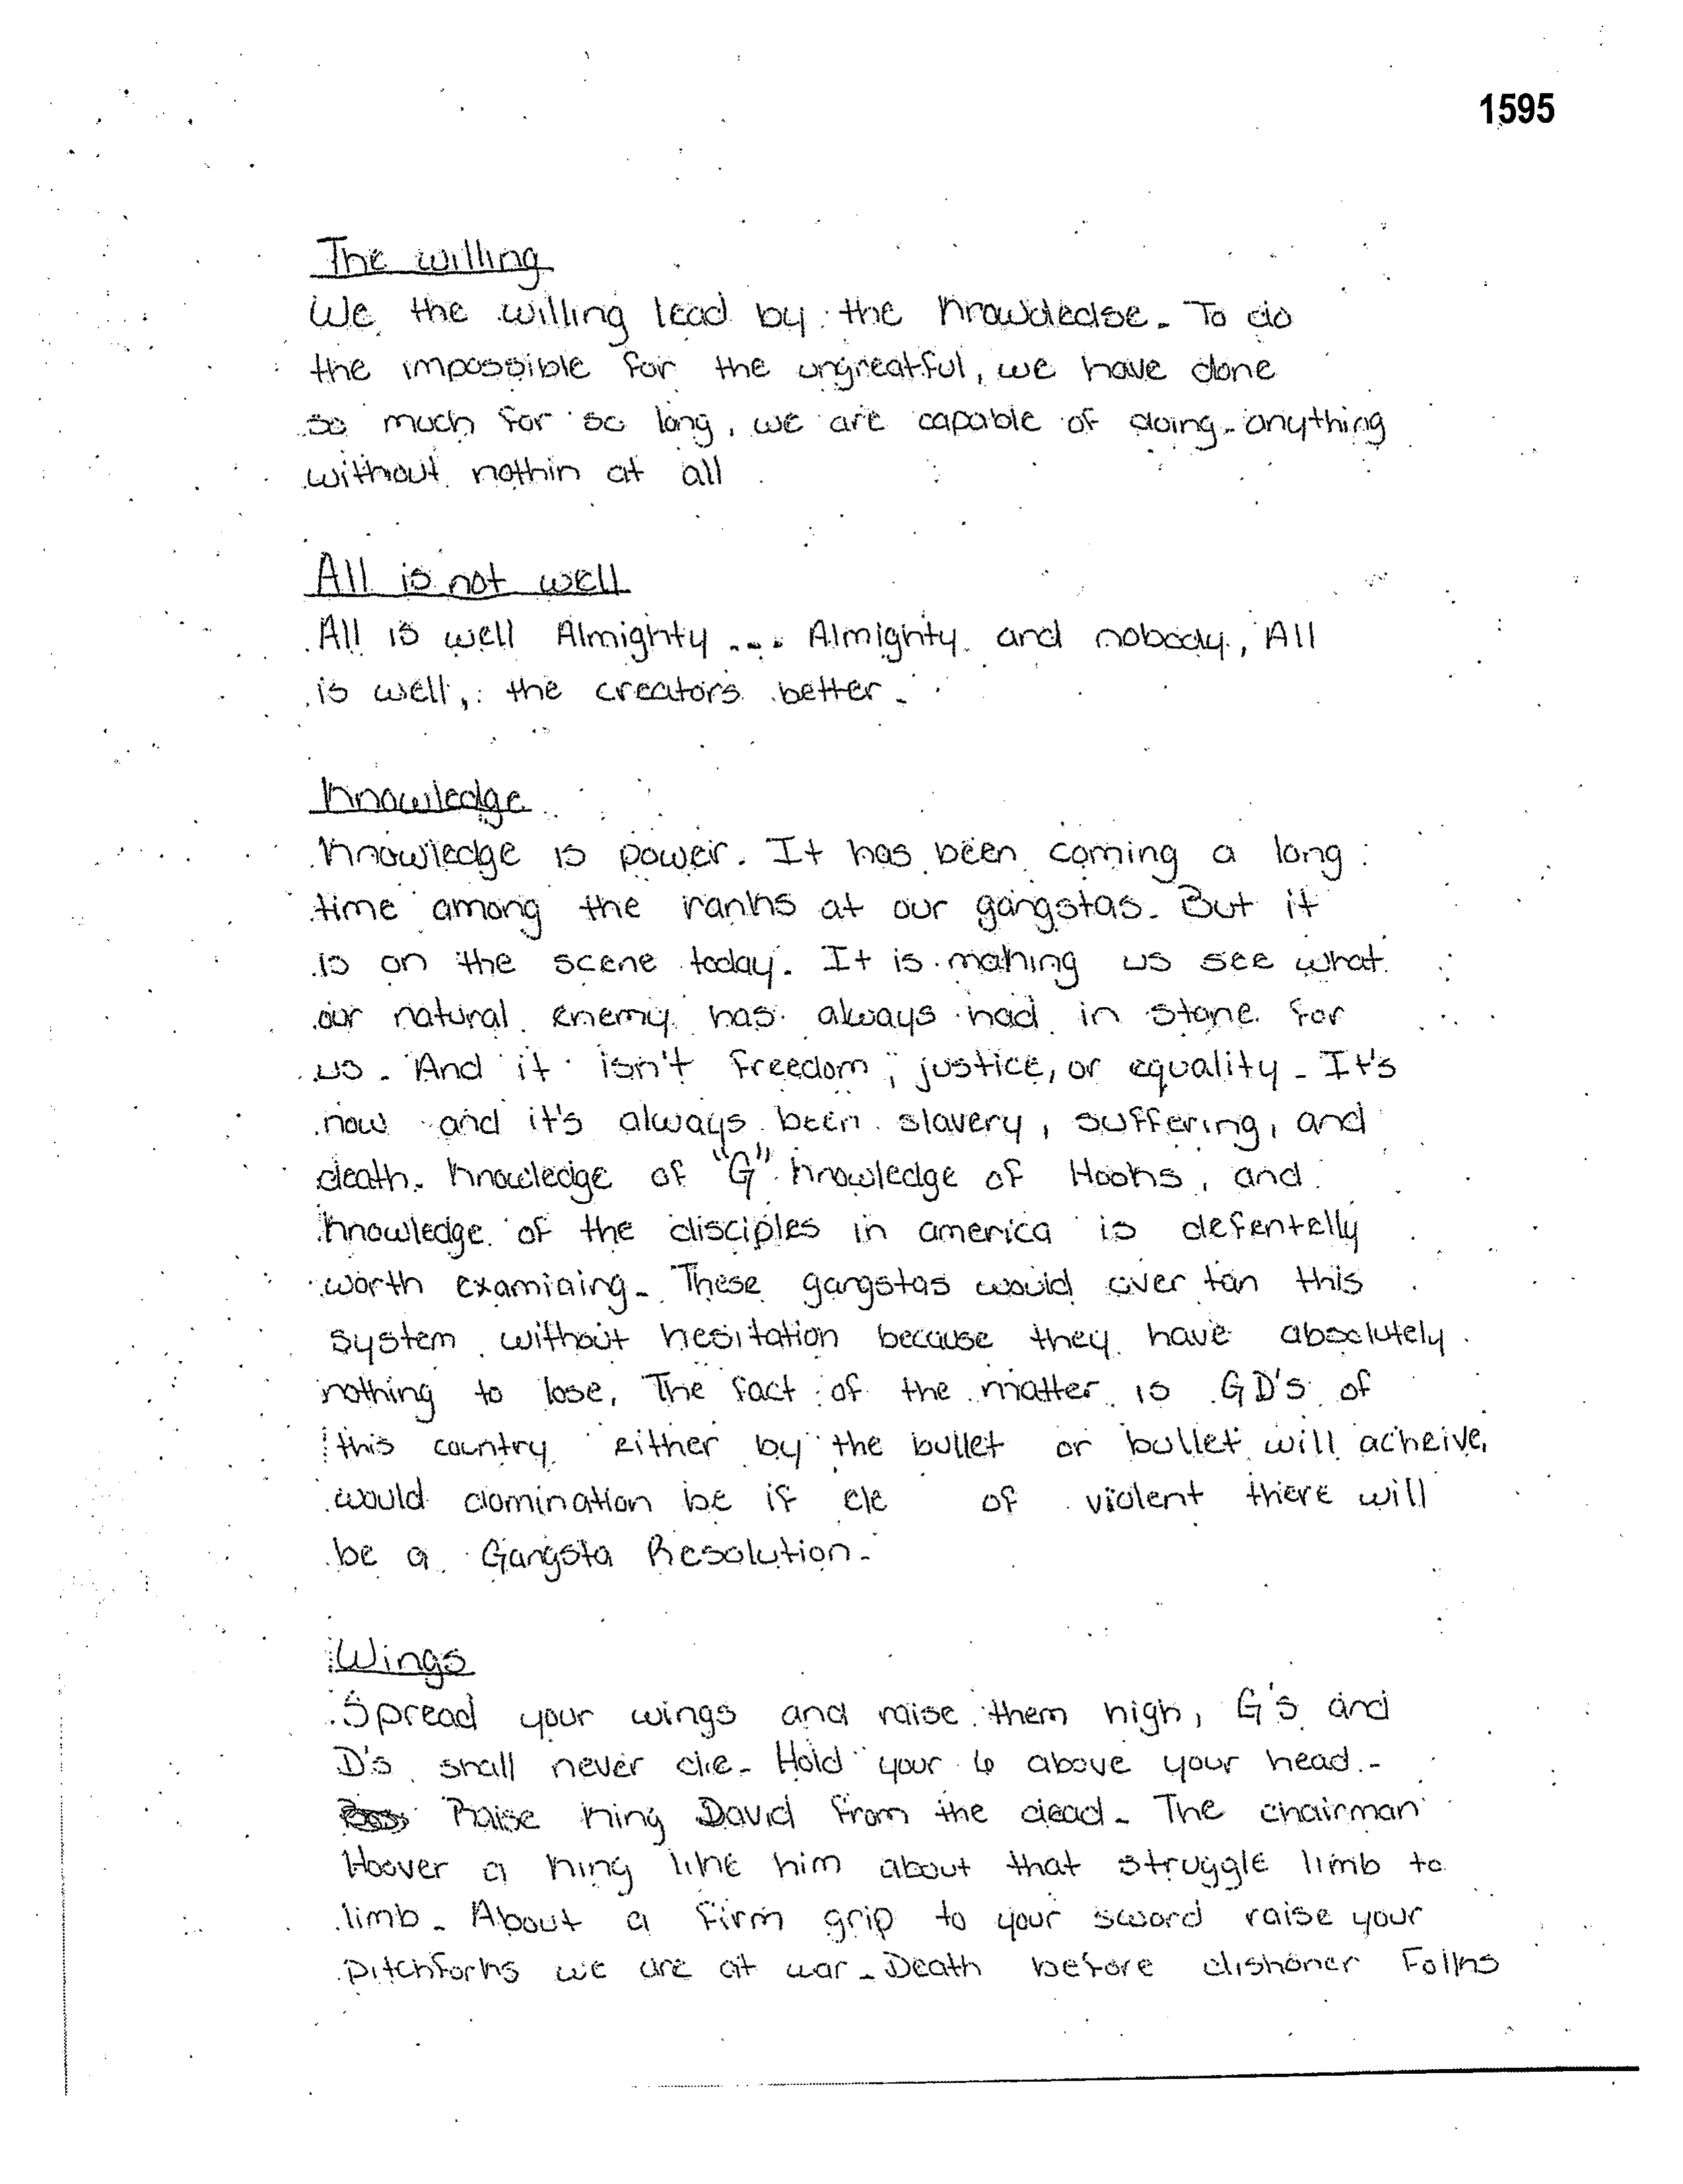 1595
The willing
We the willing lead by the Knowdedse. To do
the impossible for the ungreatful, we have done
so much for so long, we are capable of doing anything
without nothin at all
All is not well
All is well Almighty ... Almighty and nobody, All
is well, the creators better.
Knowledge
Knowledge is power. It has been coming a long
time among the ranks at our gangstas. But it
is on the scene today. It is making us see what
our natural enemy has always had in stone for
us. And it isn't freedom, justice, or equality. It's
now and it's always been slavery, suffering, and
death. Knowledge of "G" knowledge of Hooks, and
knowledge of the disciples in america is defentelly
worth examining. These gangstas would over tan this
system without hesitation because they have absolutely
nothing to lose, The fact of the matter is GD'S of
this country either by the bullet or bullet will acheive,
would domination be if of violent there will
be a Gangsta Resolution.
Wings
Spread your wings and raise them high, G's and
D's shall never die. Hold your 6 above your head.
Raise King David from the dead. The chairman
Hoover a king like him about that struggle limb to
limb. About a firm grip to your sword raise your
pitchforks we are at war. Death before dishoner Folks